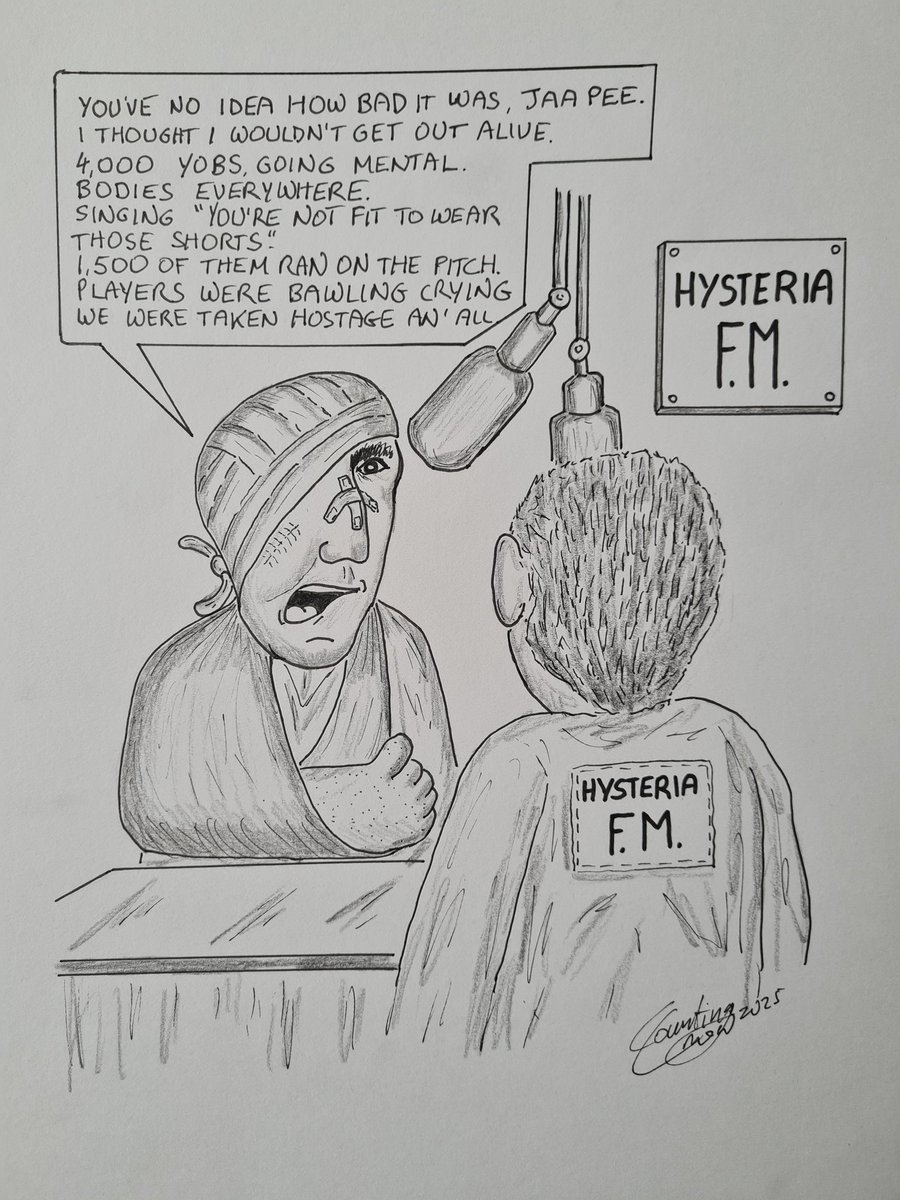 YOU'VE NO IDEA HOW BAD IT WAS, JAA PEE.
I THOUGHT I WOULDN'T GET OUT ALIVE.
4,000 YOBS, GOING MENTAL.
BODIES EVERYWHERE.
SINGING "YOU'RE NOT FIT TO WEAR
THOSE SHORTS."
1,500 OF THEM RAN ON THE PITCH.
PLAYERS WERE BAWLING CRYING
WE WERE TAKEN HOSTAGE AN' ALL
HYSTERIA
F.M.
HYSTERIA
F.M.
Counting
2025